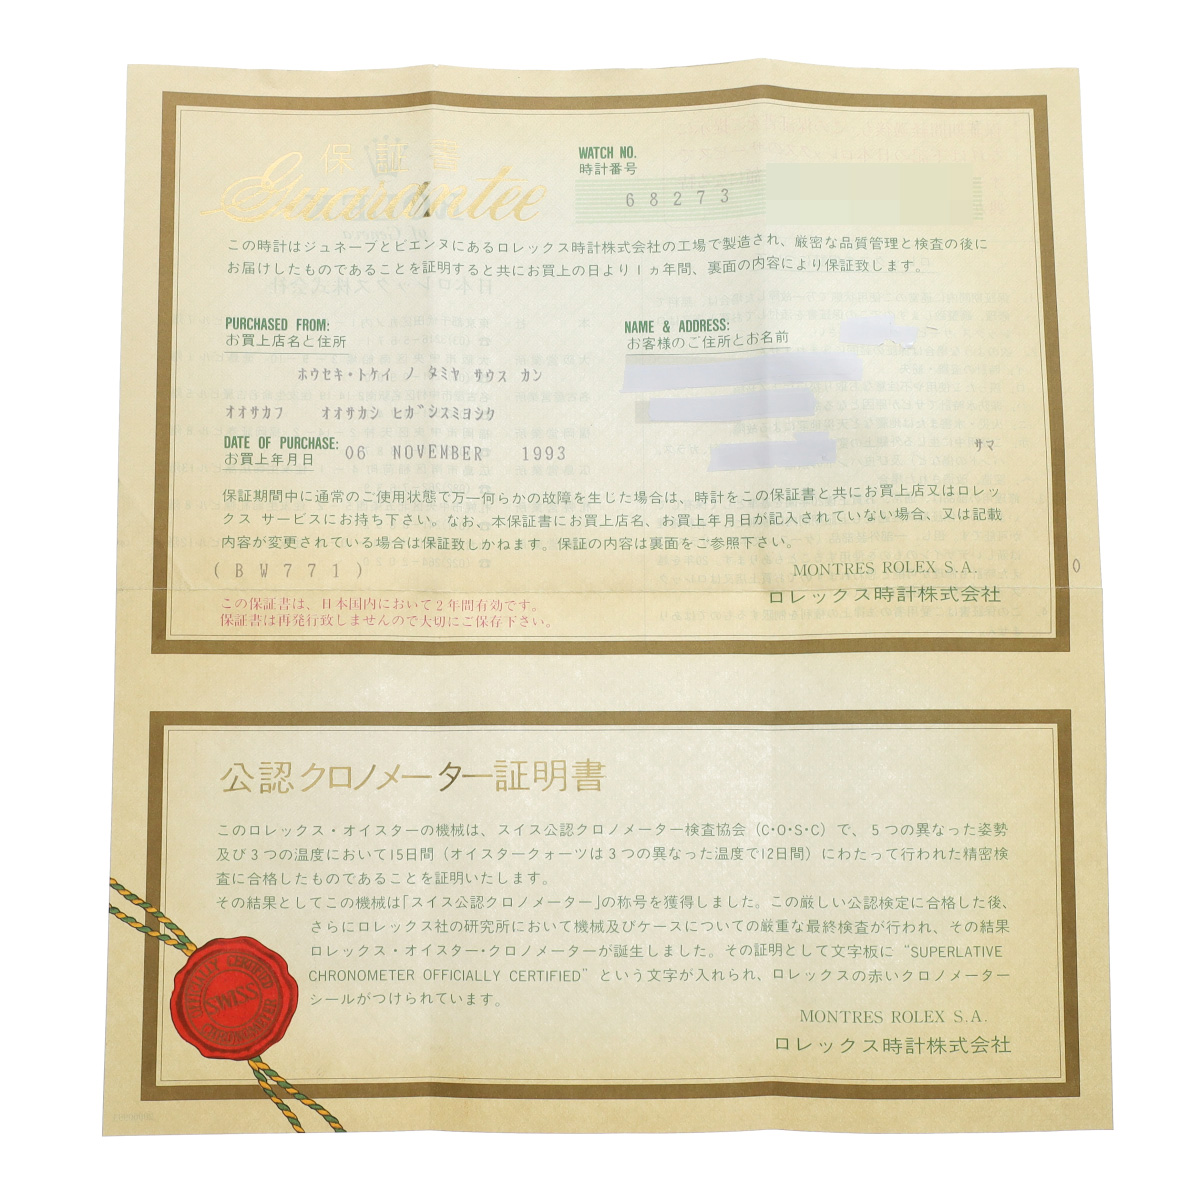 保証書
Guarantee
WATCH NO.
時計番号
68273
この時計はジュネーブとビエンヌにあるロレックス時計株式会社の工場で製造され、厳密な品質管理と検査の後に
お届けしたものであることを証明すると共にお買上の日より1ヵ年間、裏面の内容により保証致します。
PURCHASED FROM:
お買上店名と住所
ホウセキ・トケイ ノ タミヤ サウス カン
オオサカフ オオサカシ ヒガシスミヨシク
NAME & ADDRESS:
お客様のご住所とお名前
サマ
DATE OF PURCHASE:
お買上年月日
06 NOVEMBER 1993
保証期間中に通常のご使用状態で万一何らかの故障を生じた場合は、時計をこの保証書と共にお買上店又はロレッ
クス サービスにお持ち下さい。なお、本保証書にお買上店名、お買上年月日が記入されていない場合、又は記載
内容が変更されている場合は保証致しかねます。保証の内容は裏面をご参照下さい。
(BW771)
0
MONTRES ROLEX S.A.
ロレックス時計株式会社
この保証書は、日本国内において2年間有効です。
保証書は再発行致しませんので大切にご保存下さい。
公認クロノメーター証明書
このロレックス・オイスターの機械は、スイス公認クロノメーター検査協会(C・O・S・C)で、5つの異なった姿勢
及び3つの温度において15日間(オイスタークォーツは3つの異なった温度で12日間)にわたって行われた精密検
査に合格したものであることを証明いたします。
その結果としてこの機械は「スイス公認クロノメーター」の称号を獲得しました。この厳しい公認検定に合格した後、
さらにロレックス社の研究所において機械及びケースについての厳重な最終検査が行われ、その結果
ロレックス・オイスター・クロノメーターが誕生しました。その証明として文字板に "SUPERLATIVE
CHRONOMETER OFFICIALLY CERTIFIED" という文字が入れられ、ロレックスの赤いクロノメーター
シールがつけられています。
OFFICIALLY CERTIFIED
SWISS
CHRONOMETER
MONTRES ROLEX S.A.
ロレックス時計株式会社